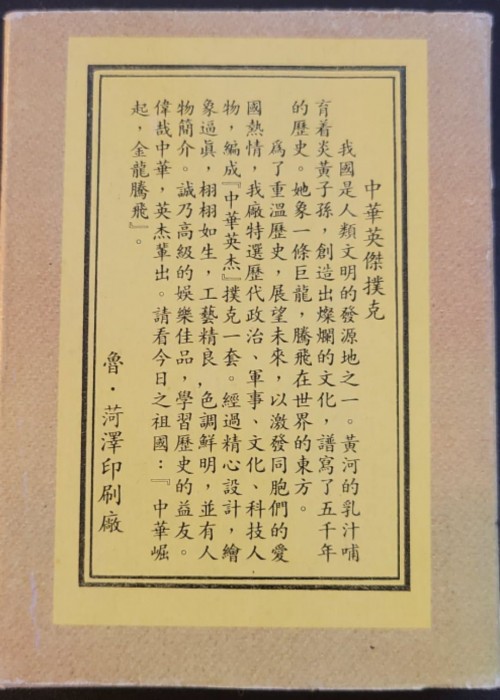 中華英傑撲克
我國是人類文明的發源地之一。黃河的乳汁哺
育着炎黃子孫，創造出燦爛的文化，譜寫了五千年
的歷史。她象一條巨龍，騰飛在世界的東方。
爲了重溫歷史，展望未來，以激發同胞們的愛
國熱情，我廠特選歷代政治、軍事、文化、科技人
物，編成『中華英杰』撲克一套。經過精心設計，繪
象逼眞，栩栩如生，工藝精良，色調鮮明，並有人
物簡介。誠乃高級的娛樂佳品，學習歷史的益友。
偉哉中華，英杰輩出。請看今日之祖國：『中華崛
起，金龍騰飛』。
魯·菏澤印刷廠